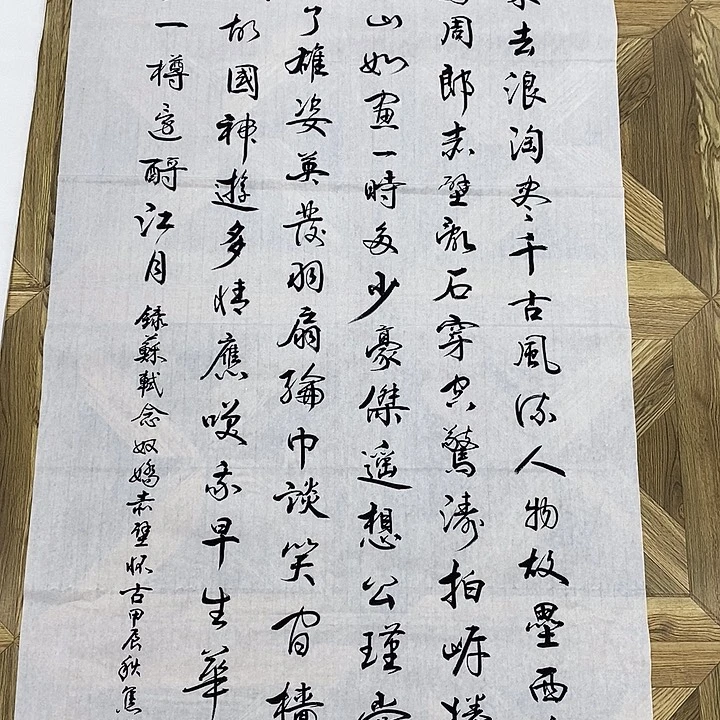 去浪淘尽千古風流人物故壘西
周郎赤壁亂石穿空驚濤拍岸捲
山如畫一時多少豪傑遥想公瑾當
了雄姿英發羽扇綸巾談笑间檣
故國神遊多情應笑我早生華
一樽還酹江月
録蘇軾念奴嬌赤壁怀古甲辰秋焦